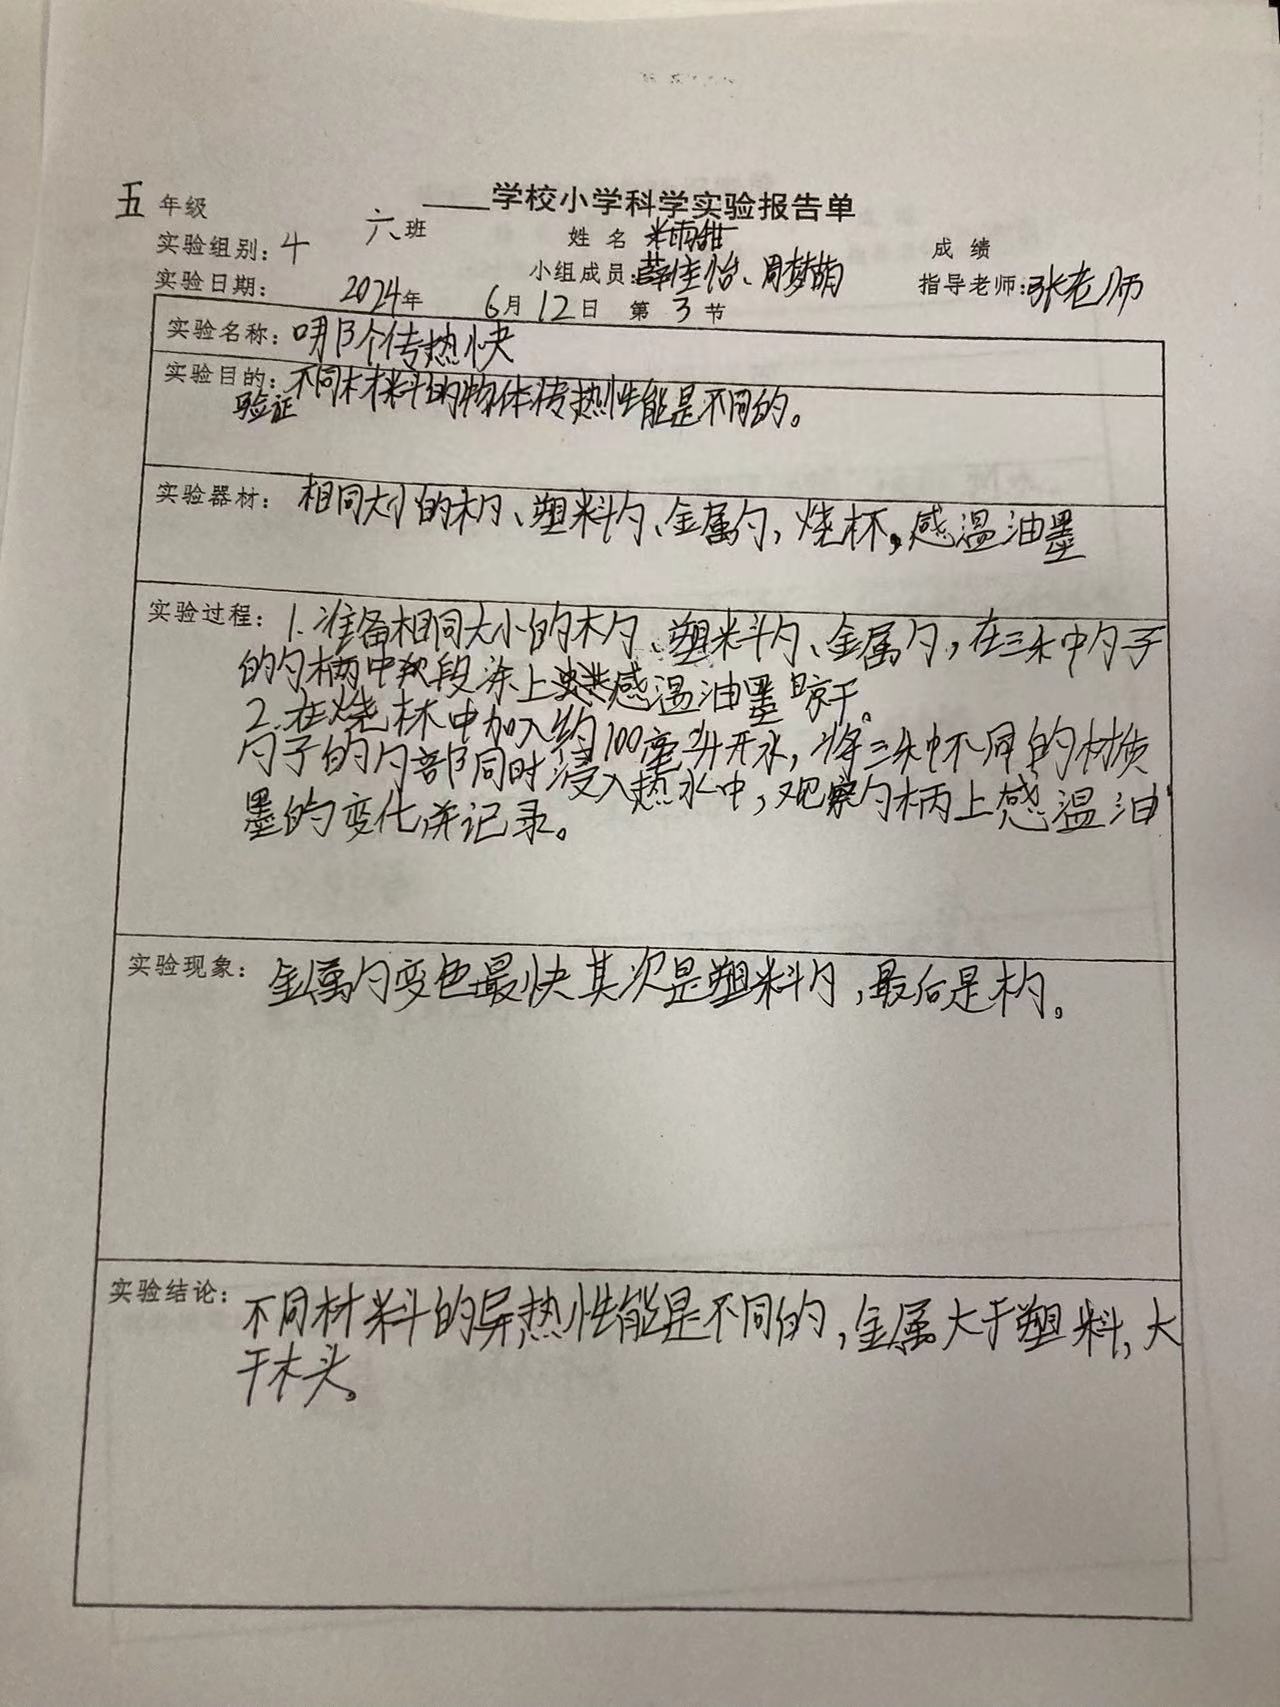 五 年级 ____学校小学科学实验报告单
实验组别:4 六班 姓名 米雨甜 成绩
小组成员:薛佳怡、周梦萌 指导老师:张老师
实验日期: 2024年 6月12日 第 3 节
实验名称: 哪个传热快
实验目的: 不同材料的物体传热性能是不同的。
验证
实验器材: 相同大小的木勺、塑料勺、金属勺,烧杯,感温油墨
实验过程: 1.准备相同大小的木勺、塑料勺、金属勺,在三种勺子
的勺柄中段涂上感温油墨晾干。
2.在烧杯中加入约100毫升开水,将三种不同的材质
勺子的勺部同时浸入热水中,观察勺柄上感温油
墨的变化,并记录。
实验现象: 金属勺变色最快其次是塑料勺,最后是木勺。
实验结论: 不同材料的导热性能是不同的,金属大于塑料,大
于木头。